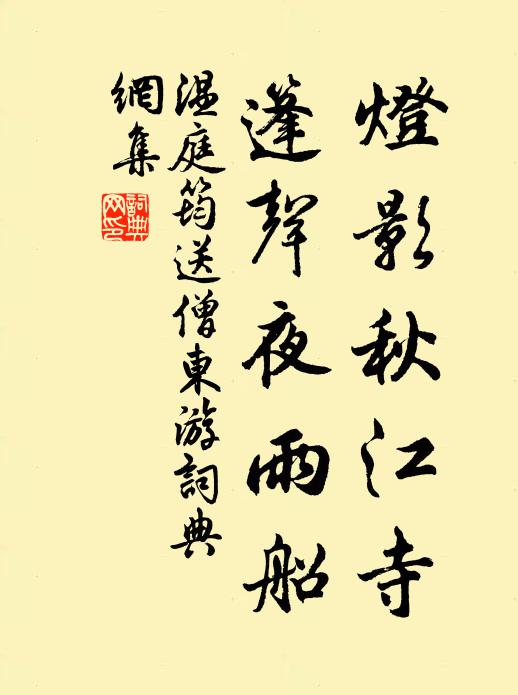 燈影秋江寺
蓬聲夜雨船
温庭筠送僧東游詞典
網集
詞典
网印